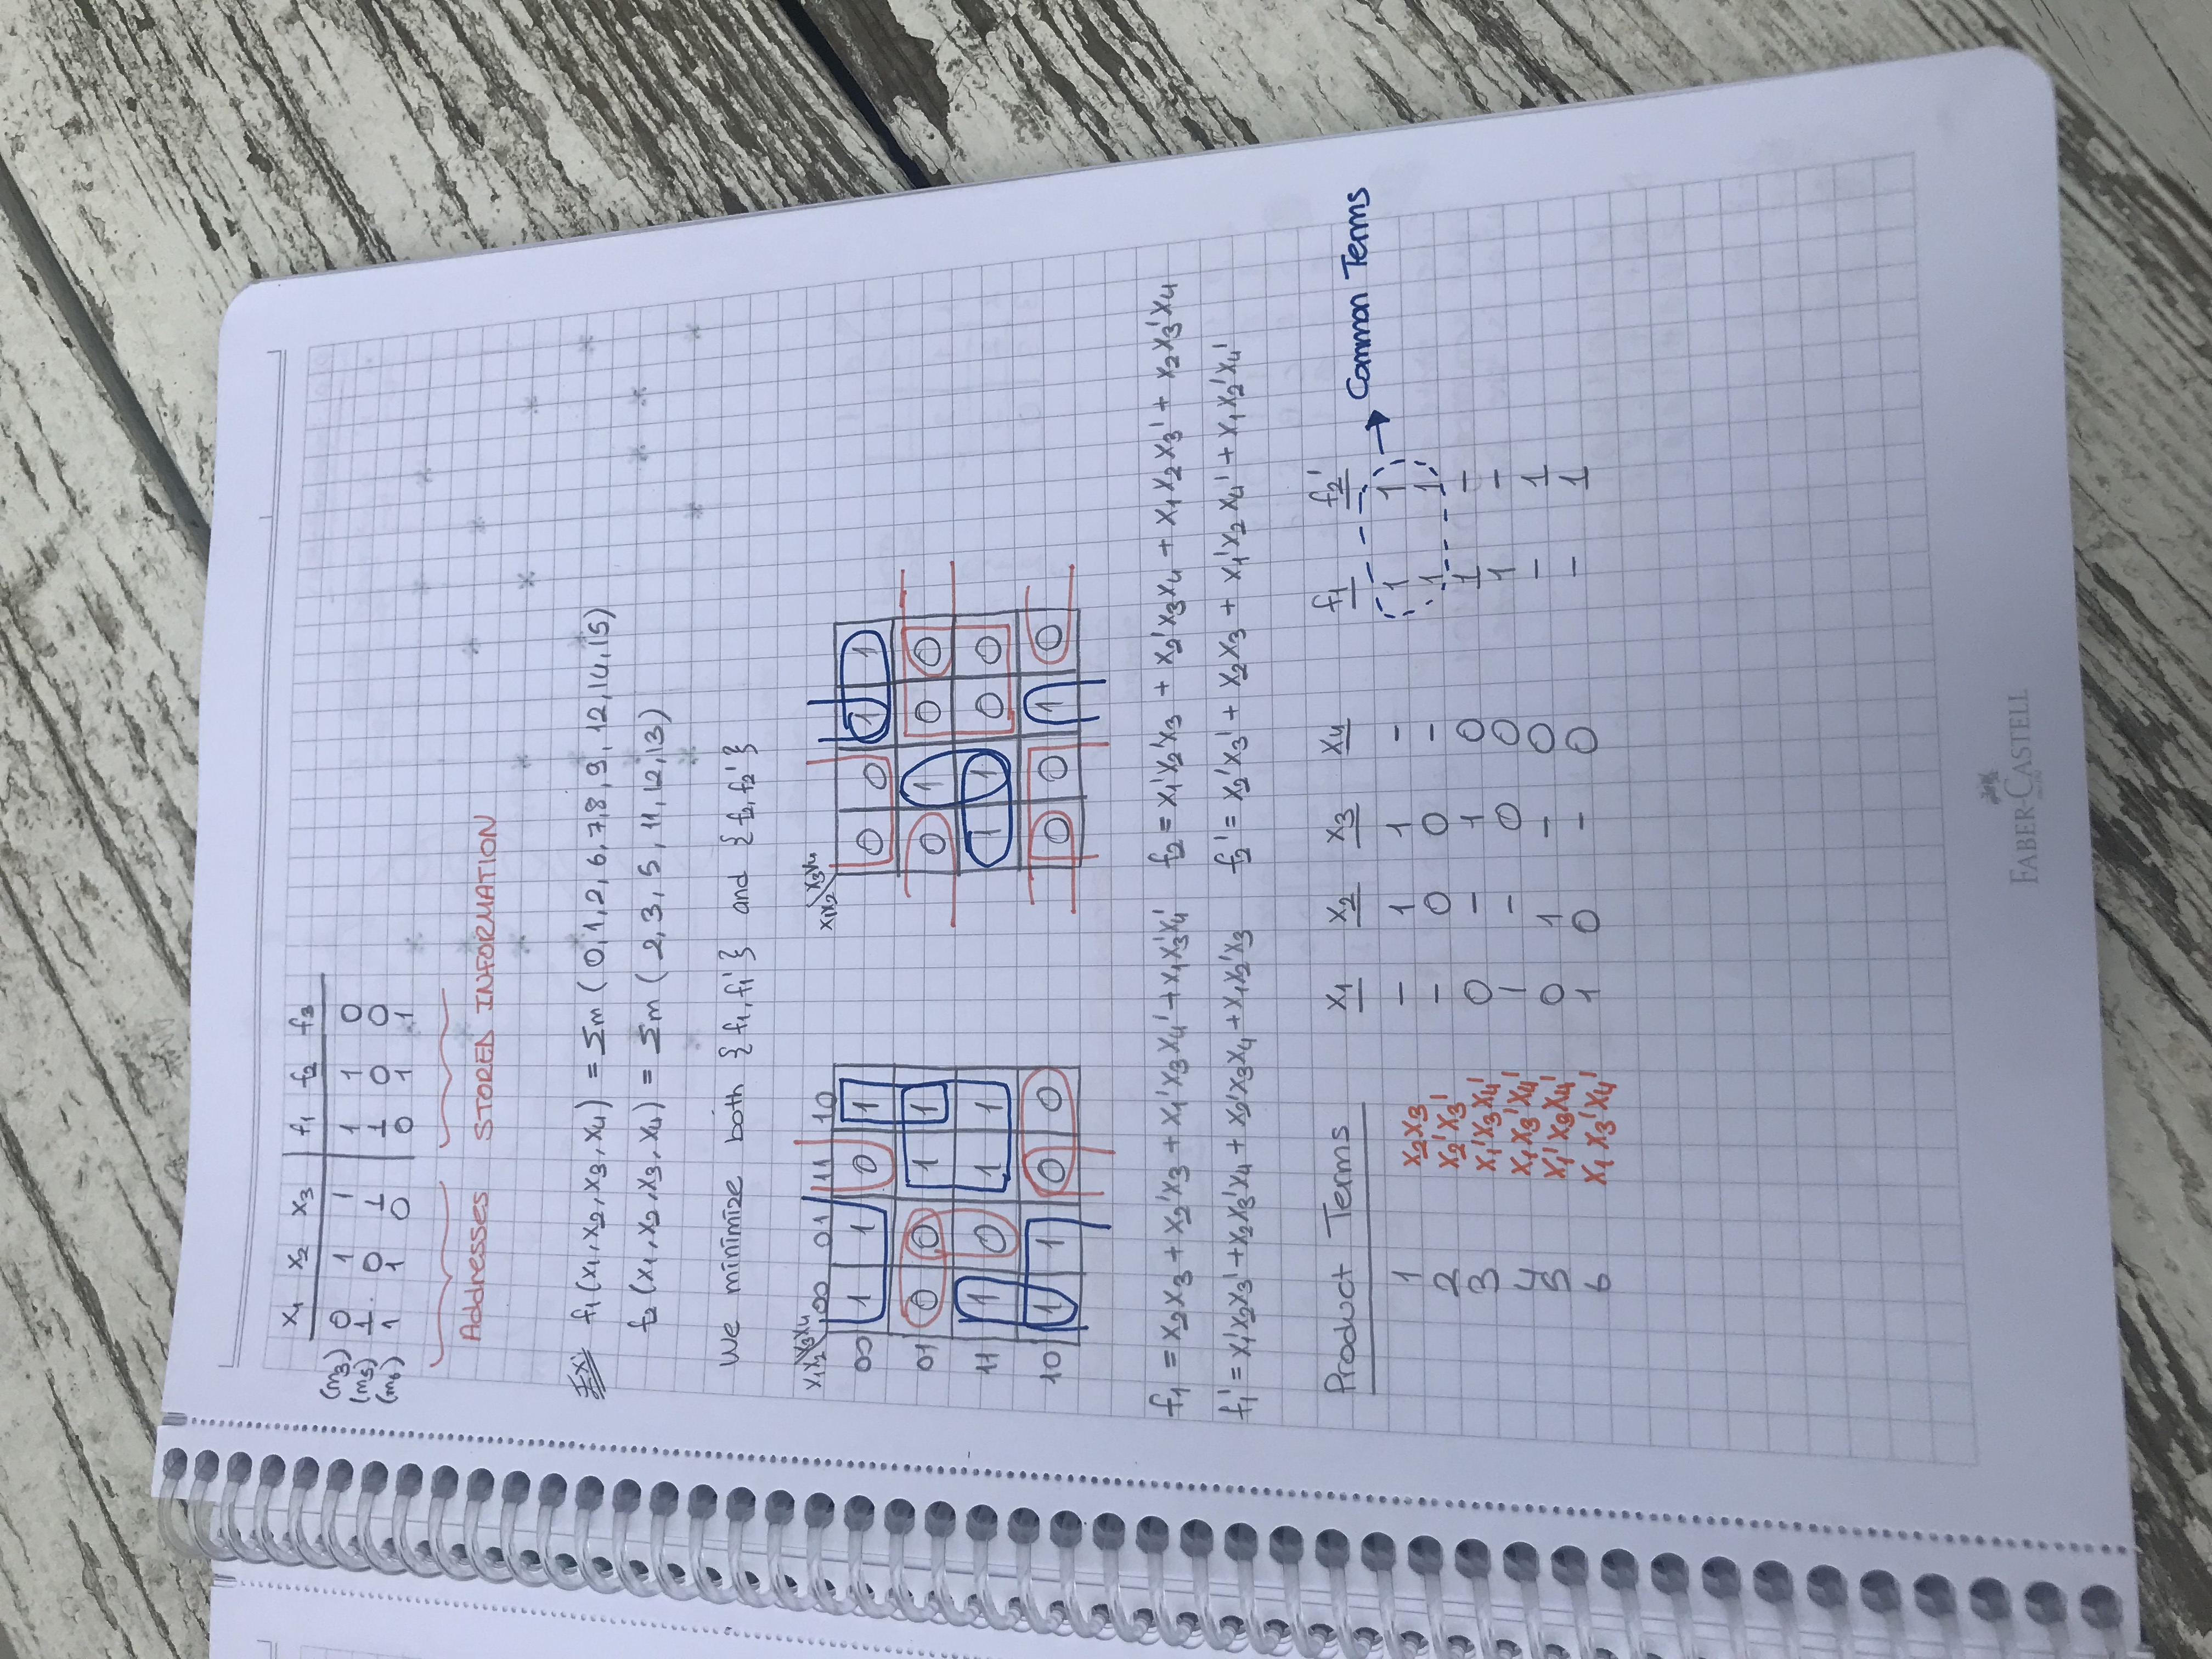 x₁ x₂ x₃ f₁ f₂ f₃
(m₃) 0 1 1 1 1 0
(m₅) 1 0 1 1 0 0
(m₆) 1 1 0 0 1 1
Addresses STORED INFORMATION
Ex: f₁(x₁,x₂,x₃,x₄) = Σm ( 0,1,2,6,7,8,9,12,14,15)
f₂(x₁,x₂,x₃,x₄) = Σm ( 2,3,5,11,12,13)
We minimize both {f₁,f₁'} and {f₂,f₂'}
x₁x₂ x₃x₄ 00 01 11 10
00 1 1 0 1
01 0 0 1 1
11 1 0 1 1
10 1 1 0 0
x₁x₂ x₃x₄
0 0 1 1
0 1 0 0
1 1 0 0
0 0 1 0
f₁ = x₂x₃ + x₂'x₃ + x₁'x₃x₄' + x₁x₃'x₄'
f₂ = x₁'x₂'x₃ + x₂'x₃x₄ + x₁x₂x₃' + x₂x₃'x₄
f₁' = x₁'x₂x₃' + x₂x₃'x₄ + x₂'x₃x₄ + x₁x₂'x₃
f₂' = x₂'x₃' + x₂x₃ + x₁'x₂x₄' + x₁x₂'x₄'
Product Terms x₁ x₂ x₃ x₄ f₁ f₂'
1 x₂x₃ - 1 1 - 1 1
2 x₂'x₃' - 0 0 - 1 1
3 x₁'x₃x₄' 0 - 1 0 1 -
4 x₁x₃'x₄' 1 - 0 0 1 -
5 x₁'x₃x₄' 0 1 - 0 - 1
6 x₁x₃'x₄' 1 0 - 0 - 1
→ Common Terms
FABER-CASTELL